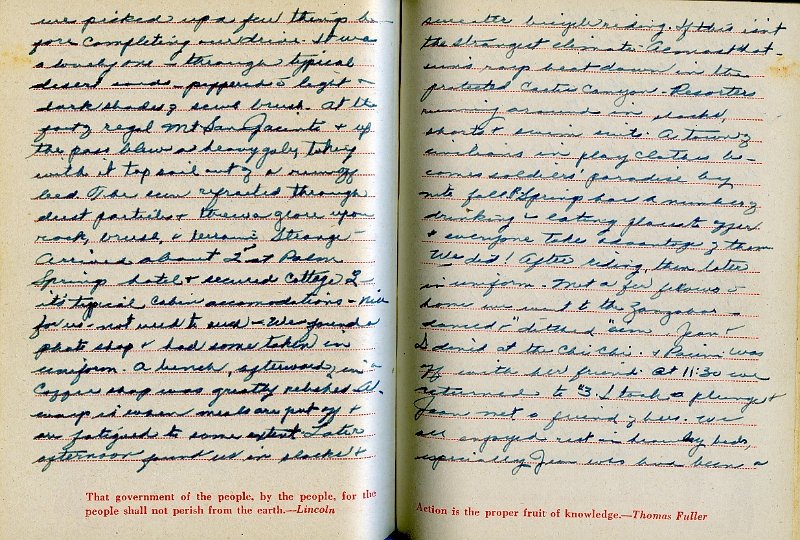 we picked up a few things be-
fore completing our drive. It was
a lovely one - through typical
desert ends - peppered c light +
dark shades of scrub brush. At the
foot of regal Mt San Jacinto + up
the pass blew a heavy gale, taking
with it top soil out of a runoff
bed. The sun refracted through
dust particles + threw a glare upon
rock, brush, + terrain. Strange -
Arrived about 2 at Palm
Spring hotel + secured Cottage 3 -
it's typical cabin accomodations - nice
for us - not used to such - We found a
photo shop + had some taken in
uniform. A lunch, afterward, in a
coffee shop was greatly relished. Al-
ways is when meals are put off +
are fatigued to some extent. Later
afternoon found us in slacks +
That government of the people, by the people, for the
people shall not perish from the earth.—Lincoln
sweater bicycle riding. If this isn't
the strangest climate - Almost hot -
sun's rays beat down in the
protected Canyon - Resorters
running around in slacks,
shorts + swim suits. A town of
civilians in play clothes be-
comes soldiers' paradise by
nite fall. P. Springs has a number of
drinking - eating places to offer
+ everyone take advantage of them
We did! After riding, then later
in uniform - met a few fellows -
home we went to the Zanzabar -
danced + "ditched" 'em. Jean +
I dined at the Chi Chi. + was
off with her friend. At 11:30 we
returned to #3. I took a plunge +
Jean met a friend of hers. We
all enjoyed rest in beds,
especially Jean who had been a
Action is the proper fruit of knowledge.—Thomas Fuller